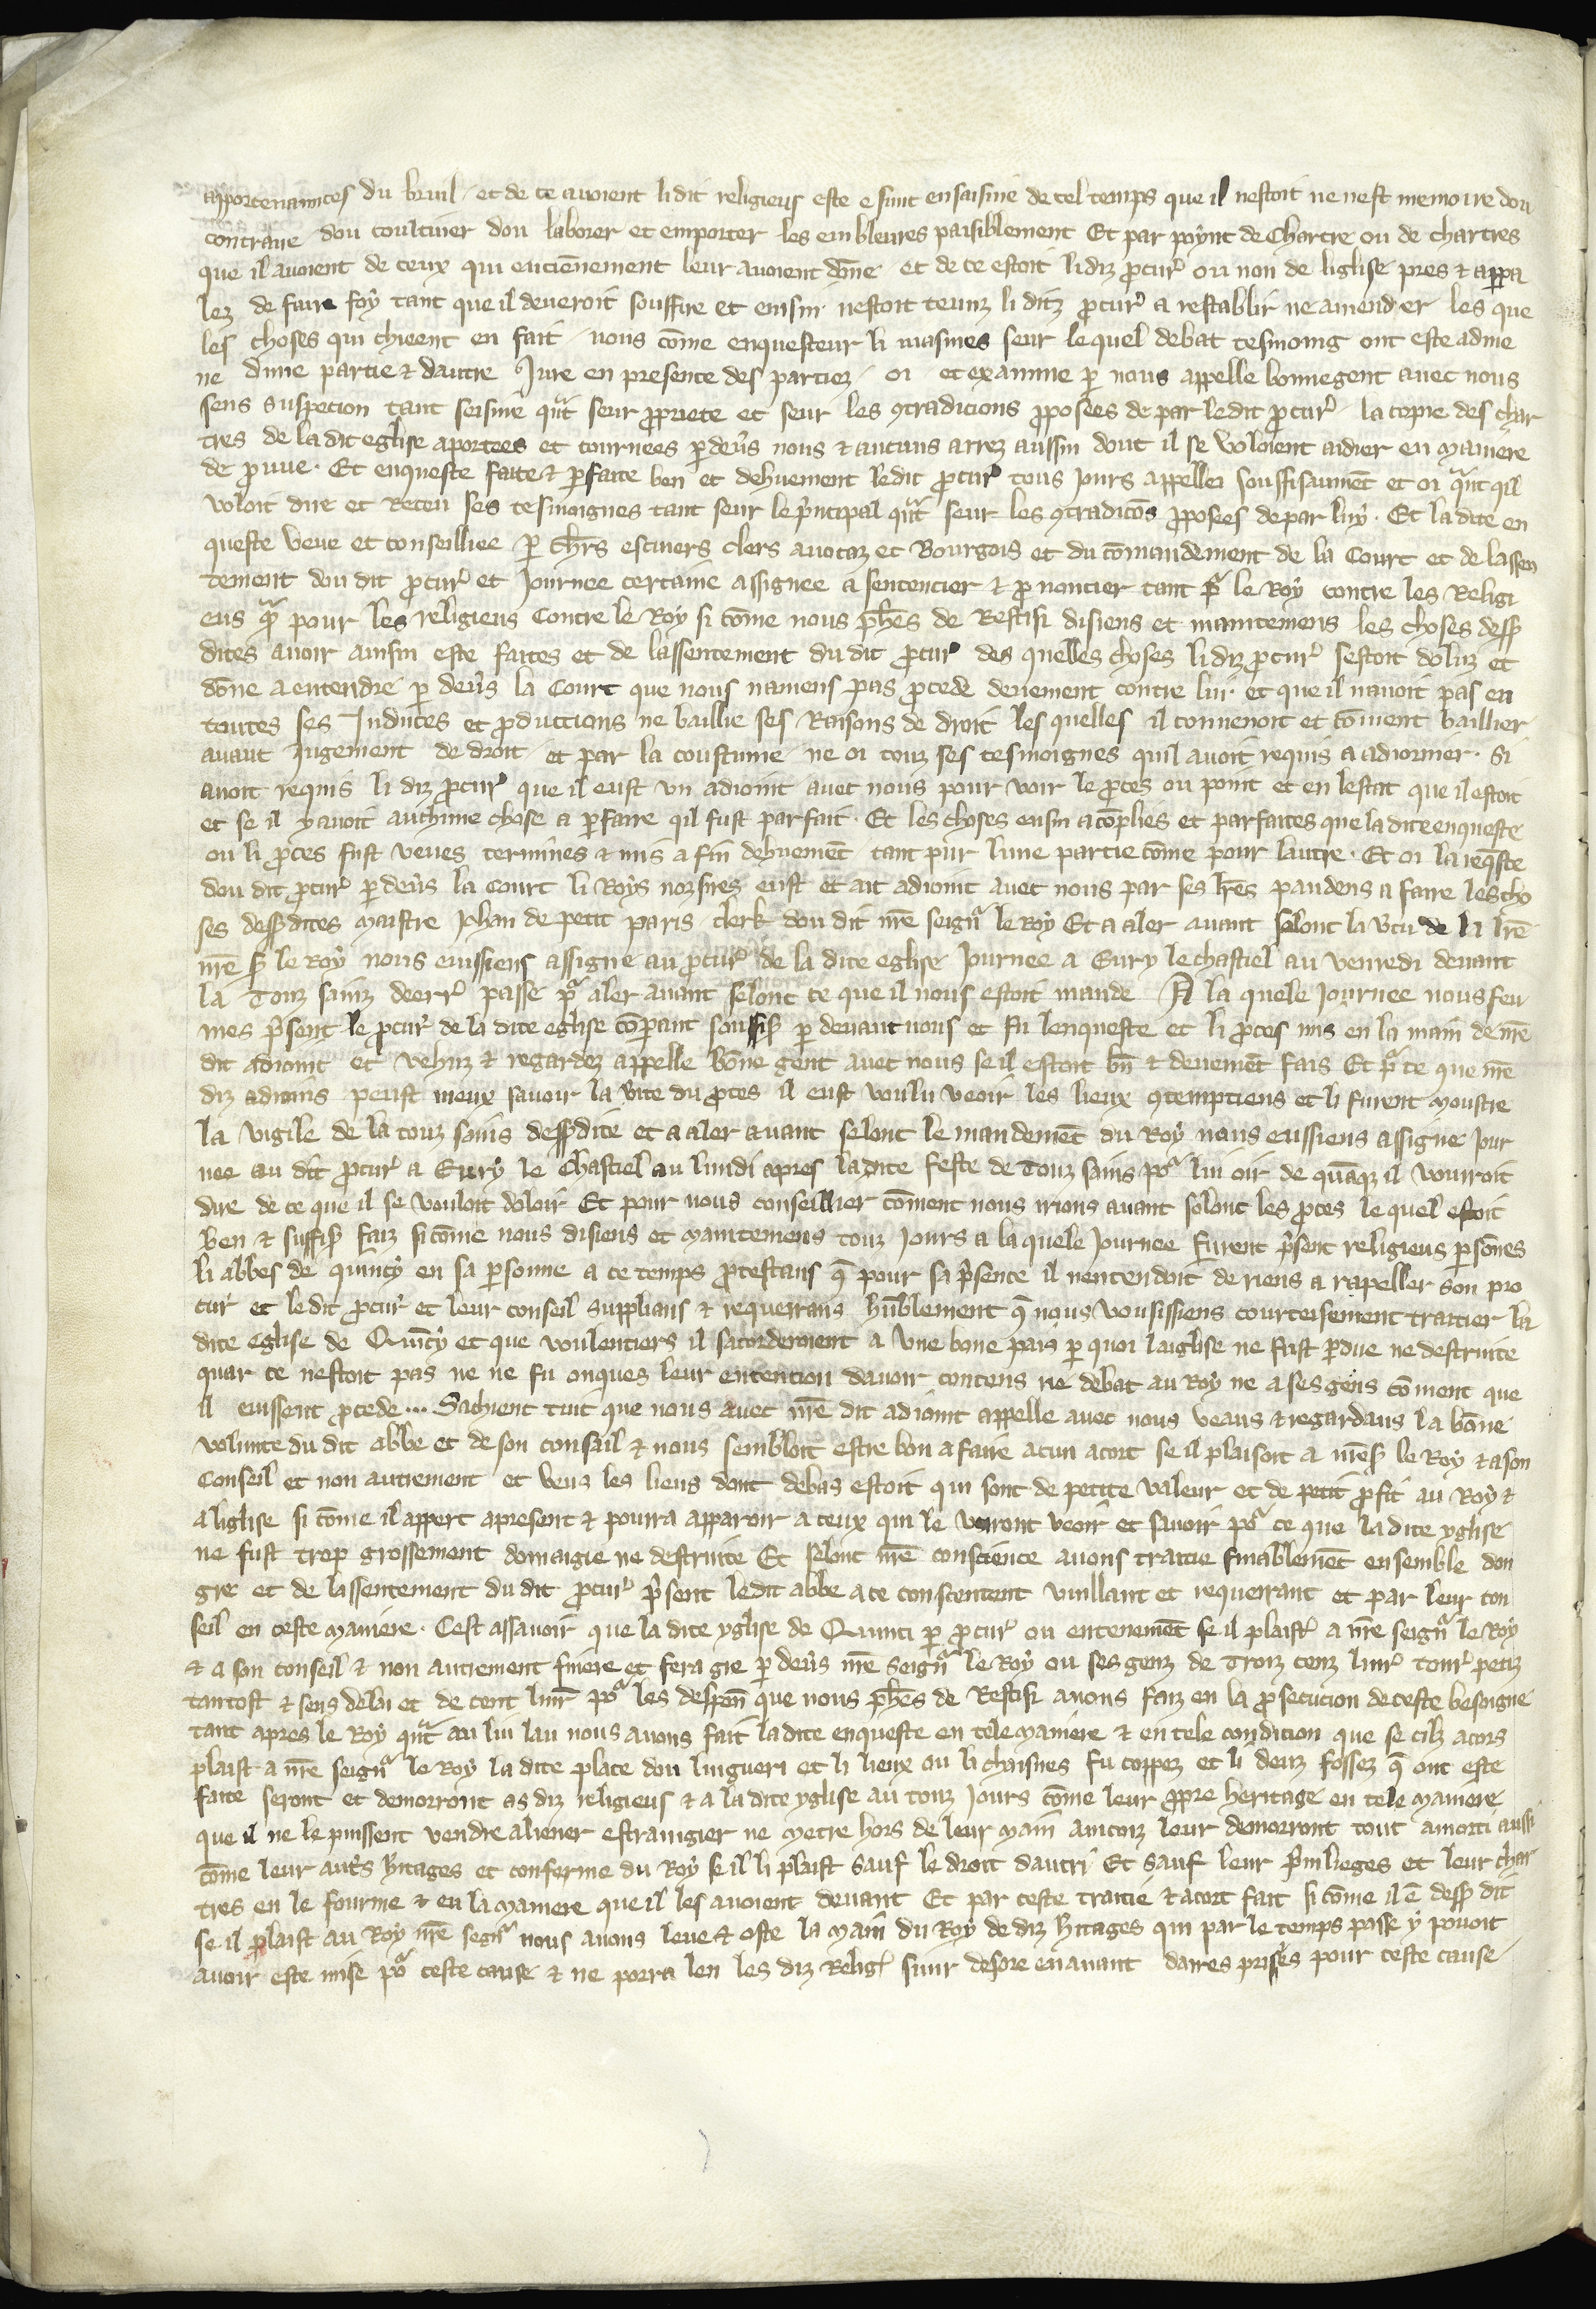 apportenances du bruil et de ce avoient li dit religieus este e sunt en saisine de tel temps que il nestoit ne nest memoire dou
contraire dou coultiver dou laborer et emporter les embleures paisiblement Et par poynt de Chartre ou de chartres
que il avoient de ceux qui enciēnement leur avoient dōne et de ce estoit li diz ꝓcur̉ ou non de liglise pres ⁊ appa
lez de faire foy tant que il deveroit souffire et ensin nestoit tenuz li ditz ꝓcur̉ a restablir ne amender les que
les choses qui chieent en fait nous cōme enquesteur li masmes seur lequel debat tesmoing ont este adme
ne dune partie ⁊ dautre Jure en presence des parties oi et examine ꝑ nous appelle bonnegent avec nous
sens suspecion tant seisine qͣt seur ꝓpriete et seur les ꝯtradicions ꝓposees de par ledit ꝓcur̉ la copie des char
tres de la dit eglise aportees et tournees ꝑ dev̉s nous ⁊ aucuns arrez aussin dont il se voloient aidier en maniere
de pruve. Et enqueste faite ⁊ ꝑfaite ben et dehuement ledit ꝓcur̉ tous jours appellei souffisaumēt et oi qͣnt qil
voloit dire et Receu ses tesmoignes tant seur le p̉ncipal qͣt seur les ꝯtradicōs ꝓposees depar luy. Et la dite en
queste veue et conseilliee ꝑ ch̄rs escuiers clers avocaz et Bourgois et du cōmandement de la Court et de lassen
tement dou dit ꝓcur̉ et journee certaine assignee a sentencier ⁊ ꝓnoncier tant pͬ le Roy contre les Religi
eus qͣ pour les religieus Contre le Roy si cōme nous ph̄es de Restisi disiens et maintemens les choses dess
dites avoir ainsin este faites et de lassentement du dit ꝓcur̉ des quelles choses li diz ꝓcur̉ sestoit doluz et
dōne a entendre ꝑ dev̉s la Court que nous naviens pas ꝓcede devement contre lui. et que il navoit pas eu
toutes ses Induces et ꝓductions ne baillie ses Raisons de droit les quelles il convenoit et cōment baillier
avant jugement de droit et par la coustume ne oi touz ses tesmoignes quil avoit requis a adiorner. Si
avoit requis li diz ꝓcur̉ que il eust un adioint avec nous pour voir le ꝓces ou point et en lestat que il estoit
et se il y avoit auchune chose a ꝑfaire qil fust parfait. Et les choses ensin acōplies et parfaites que la dite enqueste
ou li ꝓces fust veues termines ⁊ mis a fin dehuemēt tant pur lune partie cōme pour lautre. Et oi la req̄ste
dou dit ꝓcur̉ ꝑ dev̉s la Court li Roys nozsires eust et ait adioint avec nous par ses lr̄es pandens a faire les cho
ses dessdites maistre Jehan de petit paris clerk dou dit nr̄e seignͬ le Roy Et a aler avant selonc la v̉tu de la lr̄e
nr̄e s̄ le Roy nous eussiens assigne au ꝓcur̉ de la dite eglise Journee a Evry le chastiel au venredi devant
la Touz sainz deerr̉ passe pͬ aler avant selonc ce que il nous estoit mande A la quele Journee nous feu
mes p̉sent le ꝓcur̉ de la dite eglise cōparant souffis̄ ꝑ devant nous et fu lenqueste et li ꝓces mis en la main de nr̄e
dit adioint et vehuz ⁊ regardez appelle bōne gent avec nous se il estoit bn̄ ⁊ devemēt fais Et pͬ ce que nr̄e
diz adioins peust mieux savoir la v̉ite du ꝓces il eust voulu veoir les lieux ꝯtempciens et li furent moustre
la vigile de la touz sains dessdite et a aler avant selonc le mandemēt du Roy nous eussiens assigne jour
nee au dit ꝓcur̉ a Evry le Chastiel au lundi apres la dite feste de Touz sains poͬ lui oir de quāqz il vourroit
dire de ce que il se vouloit doloir Et pour nous conseillier cōment nous irions avant selonc les ꝓces le quel estoit
ben ⁊ suffis̄ faiz si cōme nous disiens et maintemens touz jours a la quele journee furent p̉sent religieus ꝑsōnes
li abbes de quincy en sa ꝑsonne a ce temps ꝓtestans q̄ pour sa p̉sence il nentendoit de riens a rapeller son pro
cur̉ et ledit ꝓcur̉ et leur conseil supplians ⁊ requerans hūblement q̄ nous vousissiens courtoisement traitier la
dite eglise de Quīcy et que voulentiers il sacorderoient a une bone pais ꝑ quoi laiglise ne fust ꝑdue ne destruite
quar ce nestoit pas ne ne fu onques leur entention davoir contens ne debat au Roy ne a ses gens cōment que
il eussent ꝓcede... Sachent tuit que nous avec nr̄e dit adioint appelle avec nous veans ⁊ regardans la bōne
volunte du dit abbe et de son consail ⁊ nous sembloit estre bon a faire acun acort se il plaisoit a nr̄e s̄ le Roy ⁊ a son
Conseil et non autrement et veuz les lieus dont debas estoit qui sont de petite valeur et de petit ꝓfit au Roy ⁊
a liglise si cōme il appert apresent ⁊ pourra apparoir a ceux qui le verront veoir et savoir poͬ ce que la dite yglise
ne fust trop grossement domaigie ne destruite Et selonc nr̄e conscience avons traitie finablemēt ensemble dou
gre et de lassentement du dit ꝓcur̉ p̉sent ledit abbe a ce consentent vuillant et requerant et par leur con
seil en ceste maniere. Cest assavoir que la dite yglise de Quinci ꝑ ꝓcur̉ ou enterinemēt se il plaist a nr̄e seignͬ le Roy
⁊ a son conseil ⁊ non autrement finera et fera gre ꝑ dev̉s nr̄e seignͬ le Roy ou ses genz de Troiz cenz livr̉ tour̉ petiz
tantost ⁊ sens delai et de cent livr̉ poͬ les despen̄ que nous ph̄es de Restisi avons faiz en la ꝓsecucion de ceste besoigne
tant apres le Roy qͣt au liu lau nous avons fait la dite enqueste en tele maniere ⁊ en tele condition que se cilz acors
plaist a nr̄e seignͬ le Roy la dite place dou lingueri et li lieux ou li chaisnes fu coppez et li deuz fossez q̄ ont este
faite seront et demorront as diz religieus ⁊ a la dite yglise au touz jours cōme leur ꝓpre heritage en tele maniere
que il ne le puissent vendre aliener estraingier ne metre hors de leur main aincoiz leur demorront tout amorti aussi
cōme leur aut̉s h̉itages et conferme du Roy se il li plaist sauf le droit dautri Et sauf leur p̉vileges et leur char
tres en le fourme ⁊ en la maniere que il les avoient devant Et par ceste traitie ⁊ acort fait si cōme il ē dess dit
se il plaist au Roy nr̄e segnͬ nous avons leve ⁊ oste la main du Roy de diz h̉itages qui par le temps passe y povoit
avoir este mise poͬ ceste cause ⁊ ne porra len les diz Relig̉ suir desore en avant daires prises pour ceste cause